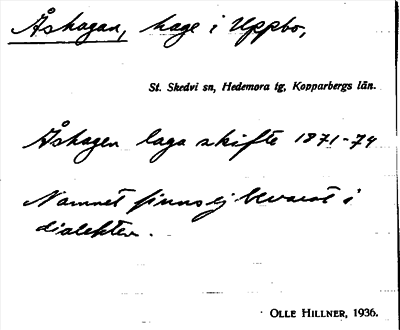 Åshagan, hage i Uppbo,
St. Skedvi sn, Hedemora tg, Kopparbergs län.
Åshagen laga skifte 1871-74
Namnet finns ej bevarat i
dialekten.
OLLE HILLNER, 1936.